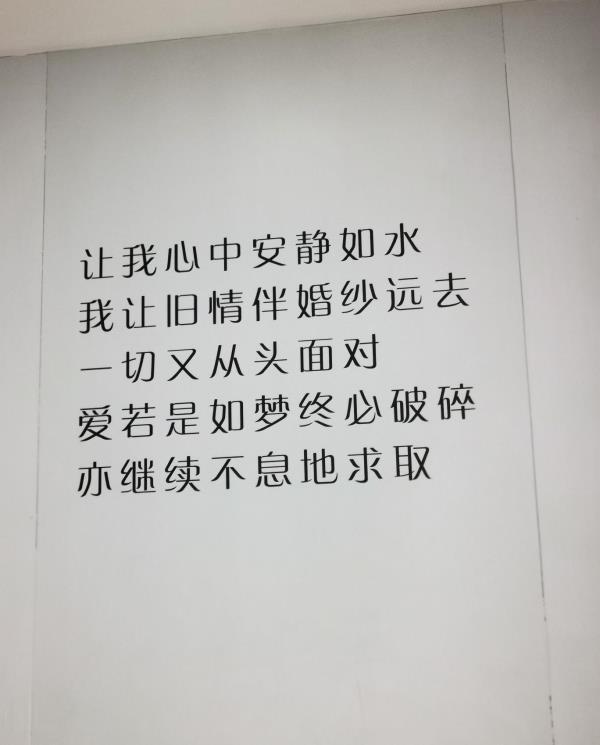 让我心中安静如水
我让旧情伴婚纱远去
一切又从头面对
爱若是如梦终必破碎
亦继续不息地求取